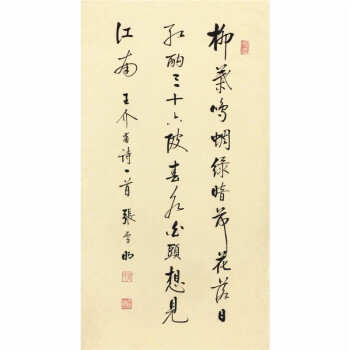 柳葉鳴蜩綠暗荷花落日
紅酣三十六陂春水白頭想見
江南 王介甫詩一首 張